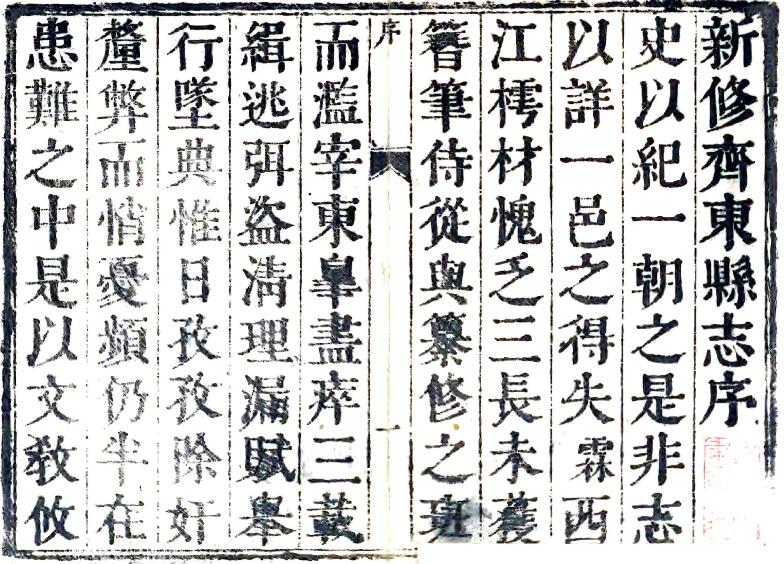 新修齊東縣志序
史以紀一朝之是非志
以詳一邑之得失霖西
江樗材愧乏三長未獲
簪筆侍從與纂修之班
序
一
而濫宰東皐盡瘁三載
緝逃弭盜淸理漏賦舉
行墜典惟日孜孜除奸
釐弊而悄憂頻仍半在
患難之中是以文敎攸